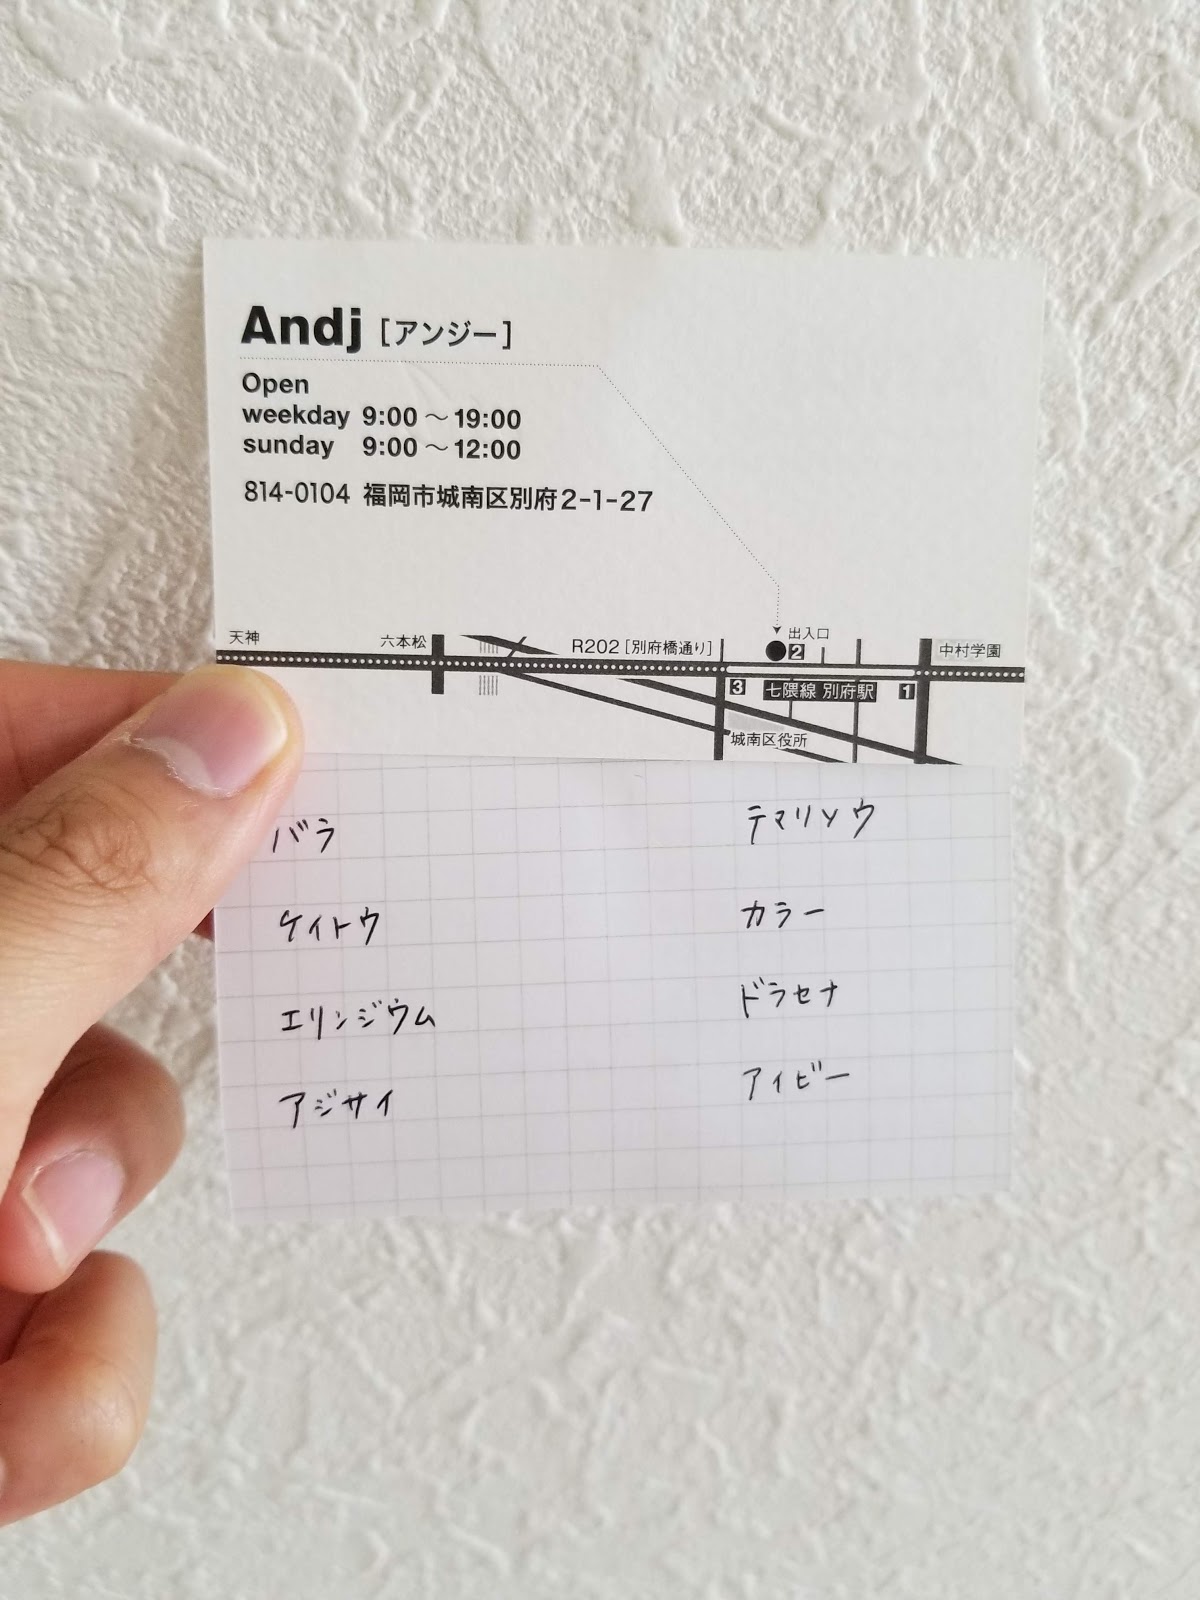 Andj [アンジー]
Open
weekday 9:00～19:00
sunday 9:00～12:00
814-0104 福岡市城南区別府2-1-27
天神
六本松
R202 [別府橋通り]
出入口
2
中村学園
3
七隈線 別府駅
1
城南区役所
バラ
ケイトウ
エリンジウム
アジサイ
テマリソウ
カラー
ドラセナ
アイビー